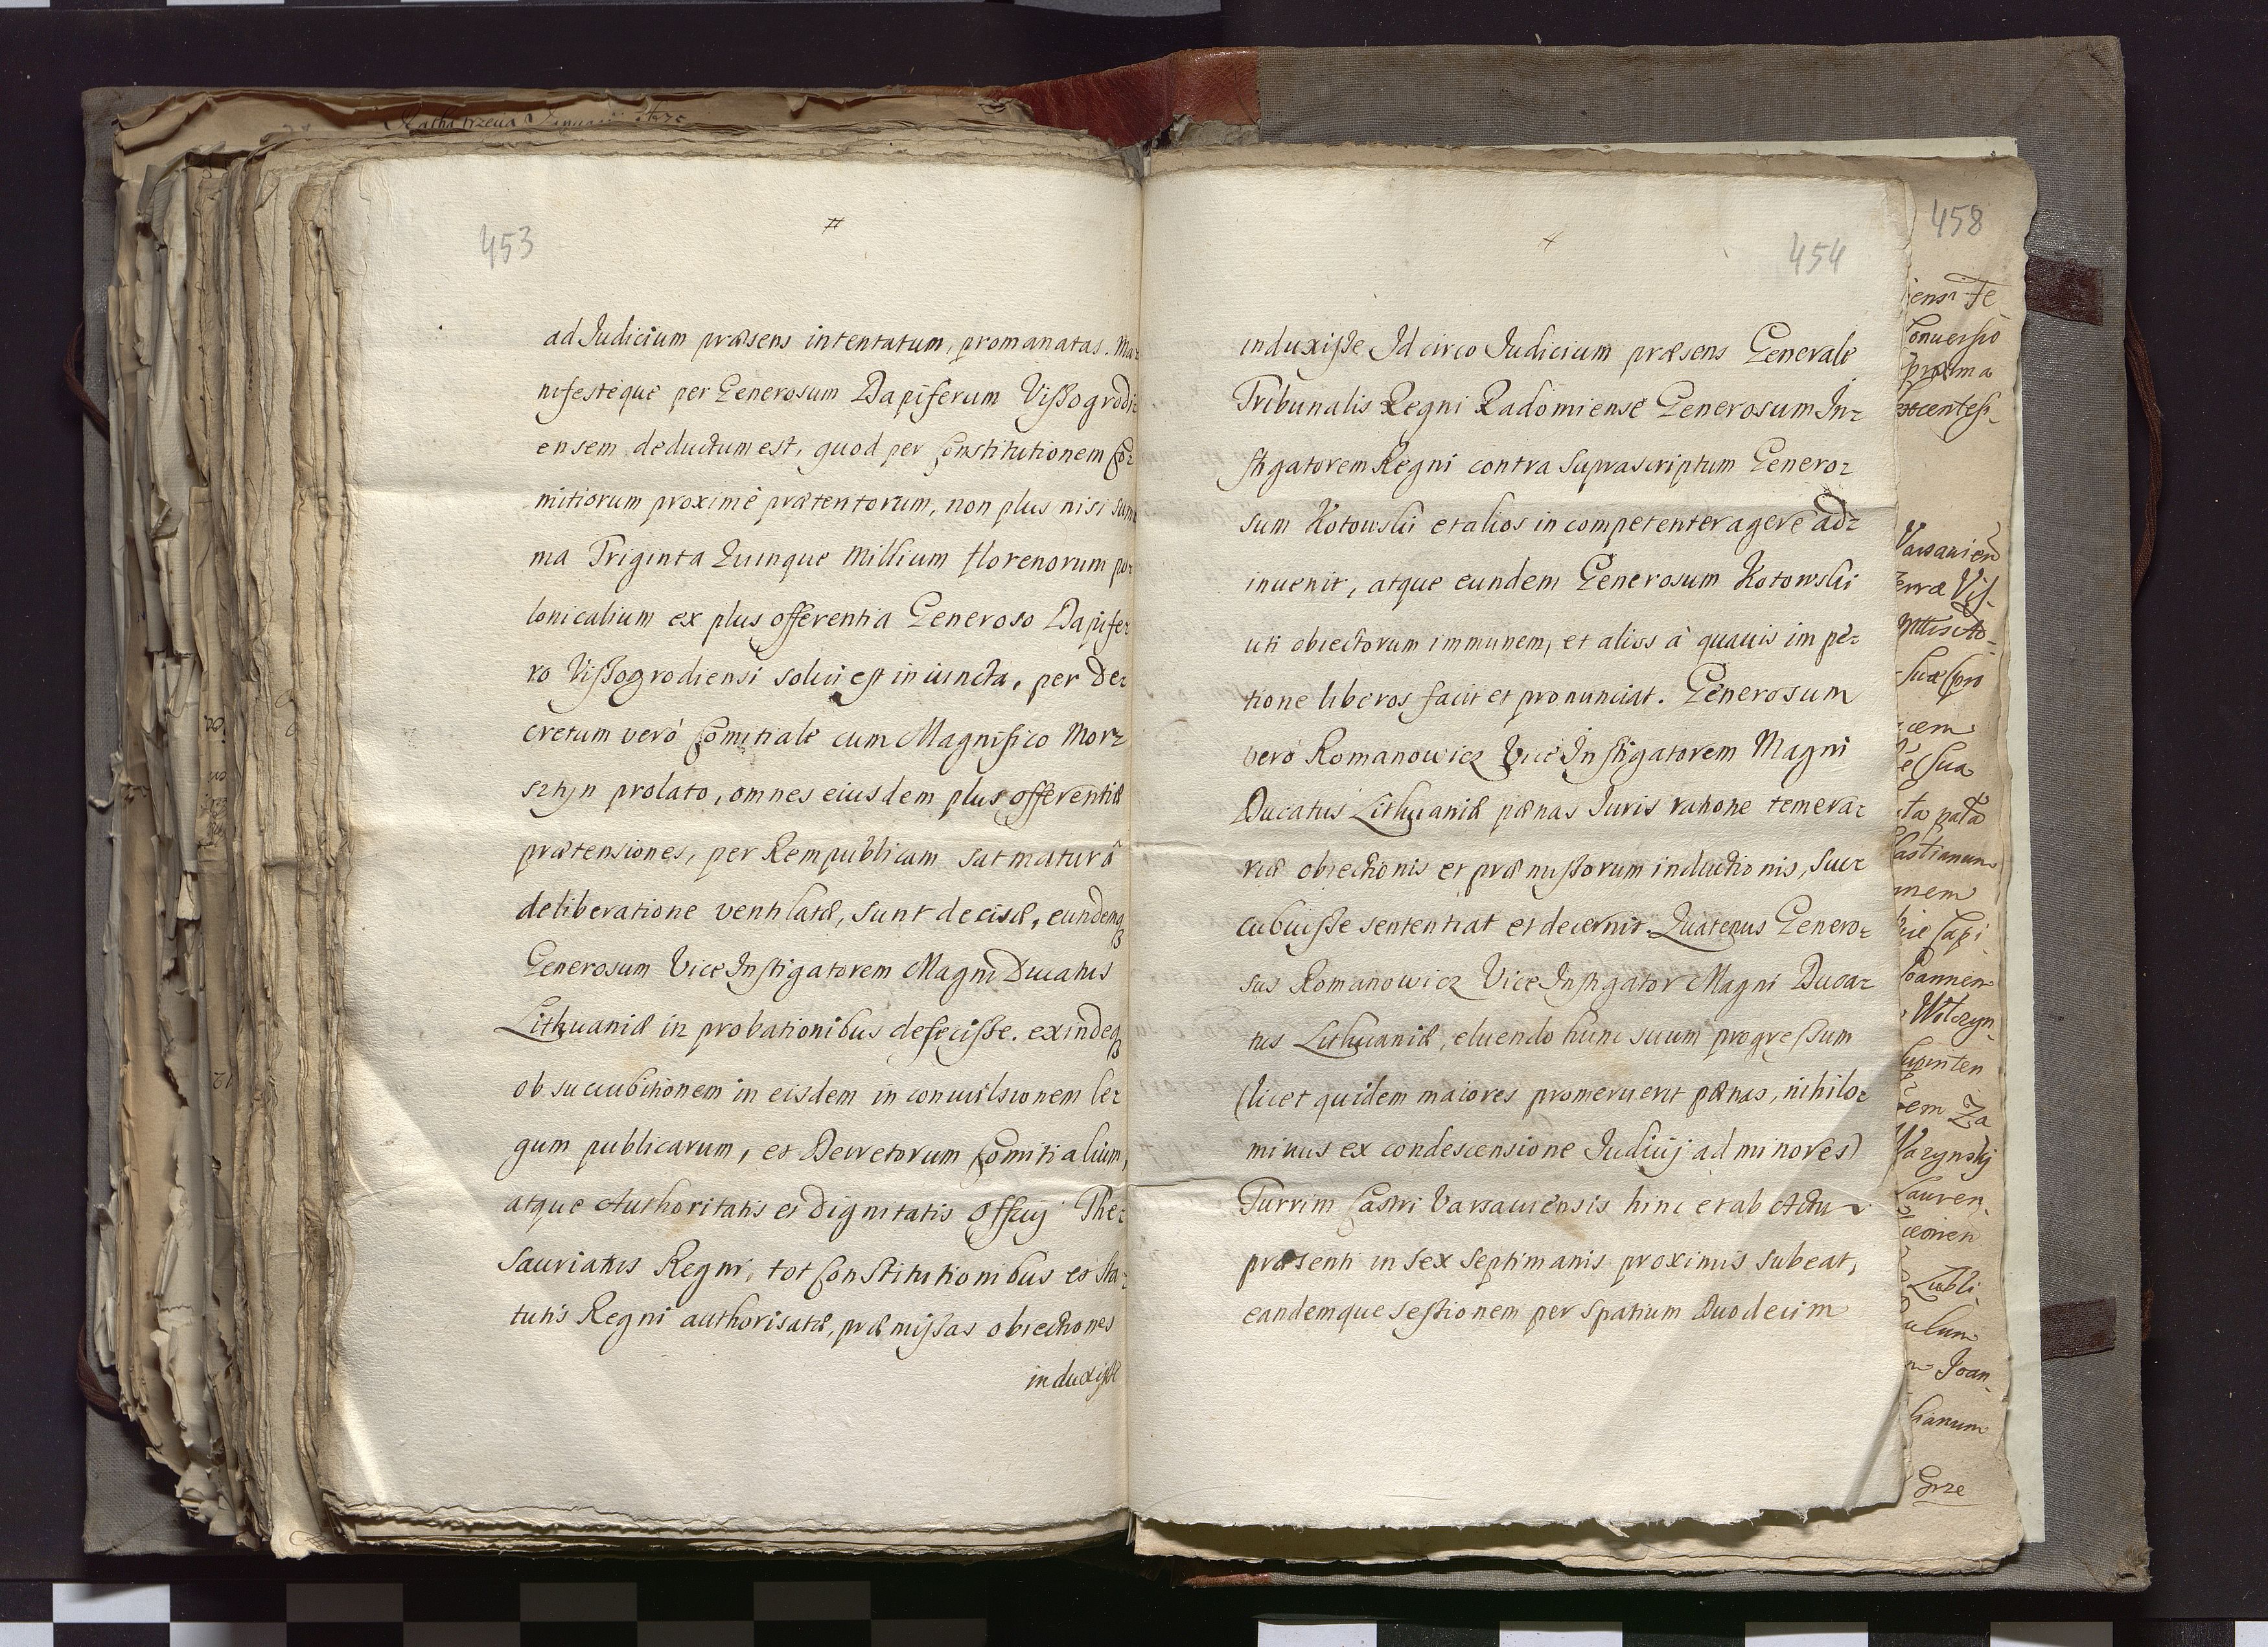 453
#
ad Judicium præsens intentatum, promanatas. Ma-
nifestéque per Generosum Dapiferum Vissogrodi-
ensem deductum est, quod per Constitutionem Co-
mitiorum proximè prætentorum, non plus nisi sum
ma Triginta Quinque Millium florenorum po-
lonicalium ex plus offerentia Generoso Dapife-
ro Vissogrodiensi solui est iniuncta, per De-
cretum verò Comitiale cum Magnifico Mor-
sztyn prolato, omnes eiusdem plus offerentiæ
prætensiones, per Rempublicam sat maturâ
deliberatione ventilatæ, sunt decisæ, eundemq3
Generosum Vice Instigatorem Magni Ducatus
Lithuaniæ in probationibus defecisse. exindeq3
ob succubitionem in eisdem in convulsionem le-
gum publicarum, et Decretorum Comitialium,
atque Authoritatis et Dignitatis Officij The-
sauriatus Regni, tot Constitutionibus et Sta-
tutis Regni authorisatæ, præmissas obiectiones
induxisse
+
454
induxisse Idcirco Judicium præsens Generale
Tribunalis Regni Radomiense Generosum In-
stigatorem Regni contra Suprascriptum Genero-
sum Kotowski et alios incompetenter agere ad-
inuenit, atque eundem Generosum Kotowski
uti obiectorum immunem, et alios à quauis impe-
tione liberos facit et pronunciat. Generosum
verò Romanowicz Vice Instigatorem Magni
Ducatus Lithuaniæ pænas Juris ratione temera-
riæ obiectionis et præmissorum inductionis, Suc-
cubuisse sententiat et decernit. Quatenus Genero-
sus Romanowicz Vice Instigator Magni Duca-
tus Lithuaniæ, eluendo hunc suum progressum
(licet quidem maiores promeruerit pænas, nihilo-
minus ex condescensione Judicij ad minores)
Turrim Castri Varsauiensis hinc et ab Actu
præsenti in sex Septimanis proximis subeat,
eandemque sessionem per spatium Duodecim
458
Conuersio
prima
Varsauien
mnem
Joannem
Wolczyn-
Za
Lauren-
Lubli-
Joan-
Grze